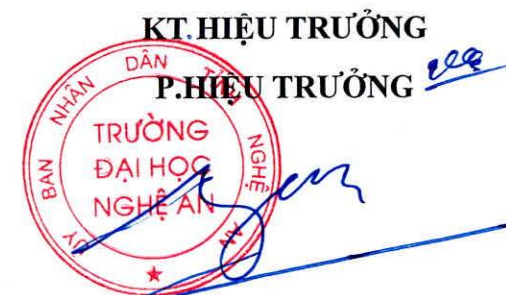 KT. HIỆU TRƯỞNG
P.HIỆU TRƯỞNG
ỦY BAN NHÂN DÂN TỈNH NGHỆ AN
TRƯỜNG
ĐẠI HỌC
NGHỆ AN